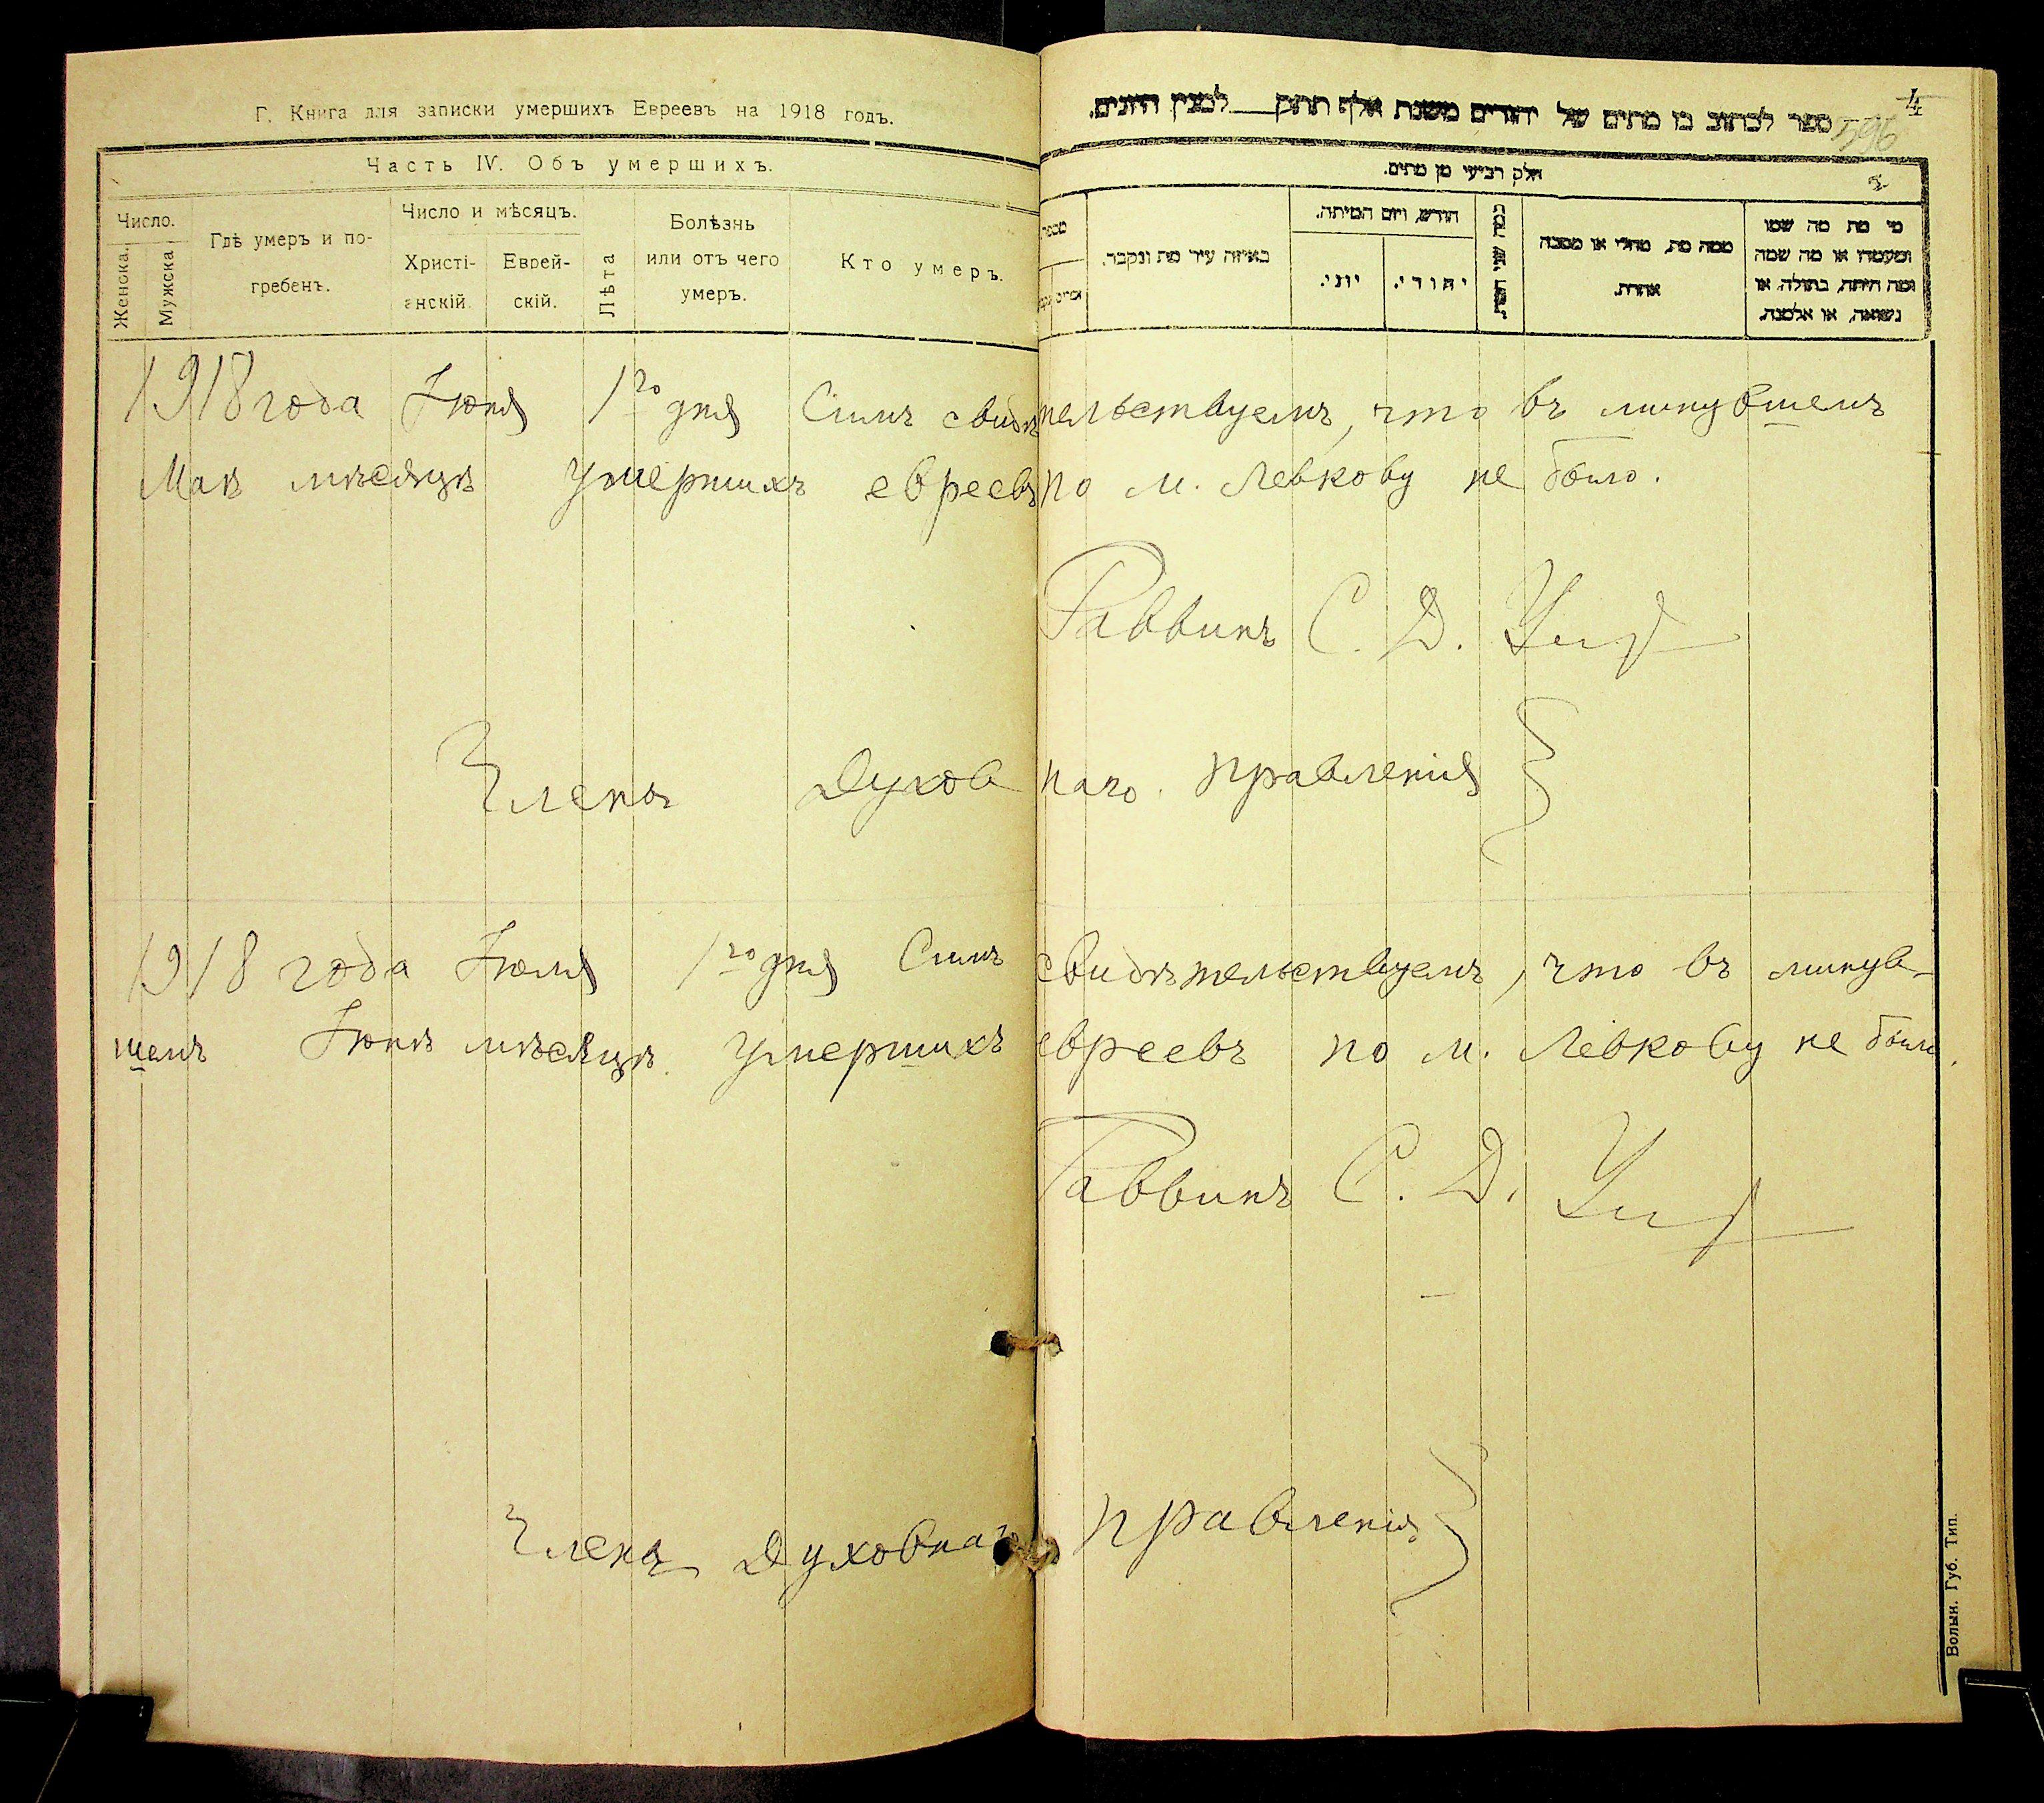 Г. Книга для записки умершихъ Евреевъ на 1918 годъ.
Часть IV. Объ умершихъ.
Число.
Женска.
Мужска
Гдѣ умеръ и по-
гребенъ.
Число и мѣсяцъ.
Христі-
анскій.
Еврей-
скій.
Лѣта
Болѣзнь
или отъ чего
умеръ.
Кто умеръ.
4
596
ספר לכתוב בו מתים של יהודים משנת אלף תתקֿ למנין היונים.
חלק רביעי מן מתים.
מספר
באיזה עיר מת ונקבר.
חודש, ויום המיתה.
יוני.
יהודי.
כמה שני המת.
ממה מת, מחלי או מסבה
אחרת.
מי מת מה שמו
ומעמדו או מה שמה
ומה היתה, בתולה, או
נשואה, או אלמנה.
1918 года Іюня 1го дня Симъ свидѣтельствуемъ, что въ минувшемъ
Маѣ мѣсяцѣ умершихъ евреевъ по м. Левкову не было.
Раввинъ С. Д.
Члены Духовнаго правленія
1918 года Іюля 1го дня Симъ свидѣтельствуемъ, что въ минув-
шемъ Іюнѣ мѣсяцѣ умершихъ евреевъ по м. Левкову не было.
Раввинъ С. Д.
Члены Духовнаго правленія
Волын. Губ. Тип.